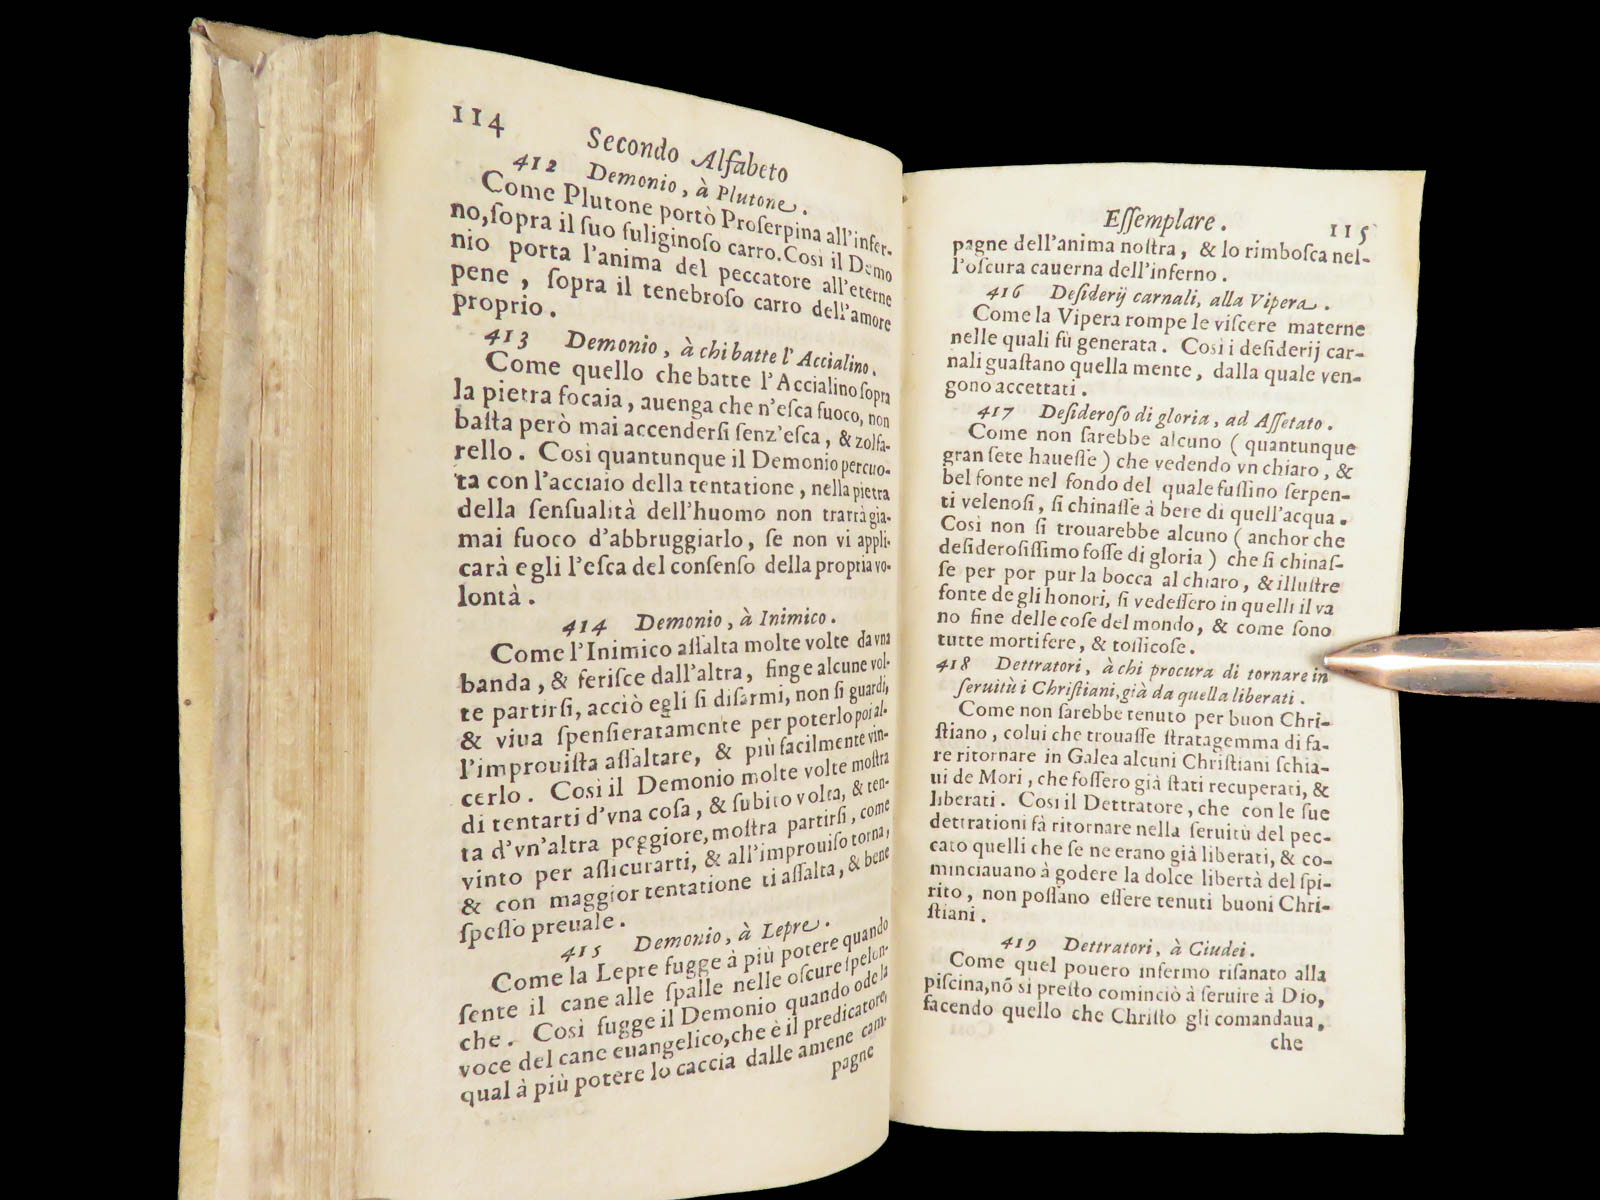 114
Secondo Alfabeto
412 Demonio, à Plutone.
Come Plutone portò Proserpina all'infer-
no, sopra il suo fuliginoso carro. Così il Demo
nio porta l'anima del peccatore all'eterne
pene, sopra il tenebroso carro dell'amore
proprio.
413 Demonio, à chi batte l'Accialino.
Come quello che batte l'Accialino sopra
la pietra focaia, auenga che n'esca fuoco, non
basta però mai accendersi senz'esca, & zolfa-
rello. Così quantunque il Demonio percuo-
ta con l'acciaio della tentatione, nella pietra
della sensualità dell'huomo non trarrà gia-
mai fuoco d'abbruggiarlo, se non vi appli-
carà egli l'esca del consenso della propria vo-
lontà.
414 Demonio, à Inimico.
Come l'Inimico assalta molte volte da vna
banda, & ferisce dall'altra, finge alcune vol-
te partirsi, acciò egli si disarmi, non si guardi,
& viua spensieratamente per poterlo poi al-
l'improuista assaltare, & più facilmente vin-
cerlo. Così il Demonio molte volte mostra
di tentarti d'vna cosa, & subito volta, & ten-
ta d'vn'altra peggiore, mostra partirsi, come
vinto per assicurarti, & all'improuiso torna,
& con maggior tentatione ti assalta, & bene
spesso preuale.
415 Demonio, à Lepre.
Come la Lepre fugge à più potere quando
sente il cane alle spalle nelle oscure spelon-
che. Così fugge il Demonio quando ode la
voce del cane euangelico, che è il predicatore,
qual à più potere lo caccia dalle amene cam-
pagne
Essemplare. 115
pagne dell'anima nostra, & lo rimbosca nel-
l'oscura cauerna dell'inferno.
416 Desiderij carnali, alla Vipera.
Come la Vipera rompe le viscere materne
nelle quali fù generata. Così i desiderij car-
nali guastano quella mente, dalla quale ven-
gono accettati.
417 Desideroso di gloria, ad Assetato.
Come non sarebbe alcuno (quantunque
gran sete hauesse) che vedendo vn chiaro, &
bel fonte nel fondo del quale fussino serpen-
ti velenosi, si chinasse à bere di quell'acqua.
Così non si trouarebbe alcuno (anchor che
desiderosissimo fosse di gloria) che si chinas-
se per por pur la bocca al chiaro, & illustre
fonte degli honori, si vedessero in quelli il va
no fine delle cose del mondo, & come sono
tutte mortifere, & tossicose.
418 Dettratori, à chi procura di tornare in
seruitù i Christiani, già da quella liberati.
Come non sarebbe tenuto per buon Chri-
stiano, colui che trouasse stratagemma di fa-
re ritornare in Galea alcuni Christiani schia-
ui de Mori, che fossero già stati recuperati, &
liberati. Così il Dettratore, che con le sue
dettrationi fà ritornare nella seruitù del pec-
cato quelli che se ne erano già liberati, & co-
minciauano à godere la dolce libertà del spi-
rito, non possano essere tenuti buoni Chri-
stiani.
419 Dettratori, à Giudei.
Come quel pouero infermo risanato alla
piscina, nõ si presto cominciò à seruire à Dio,
facendo quello che Christo gli comandaua,
che